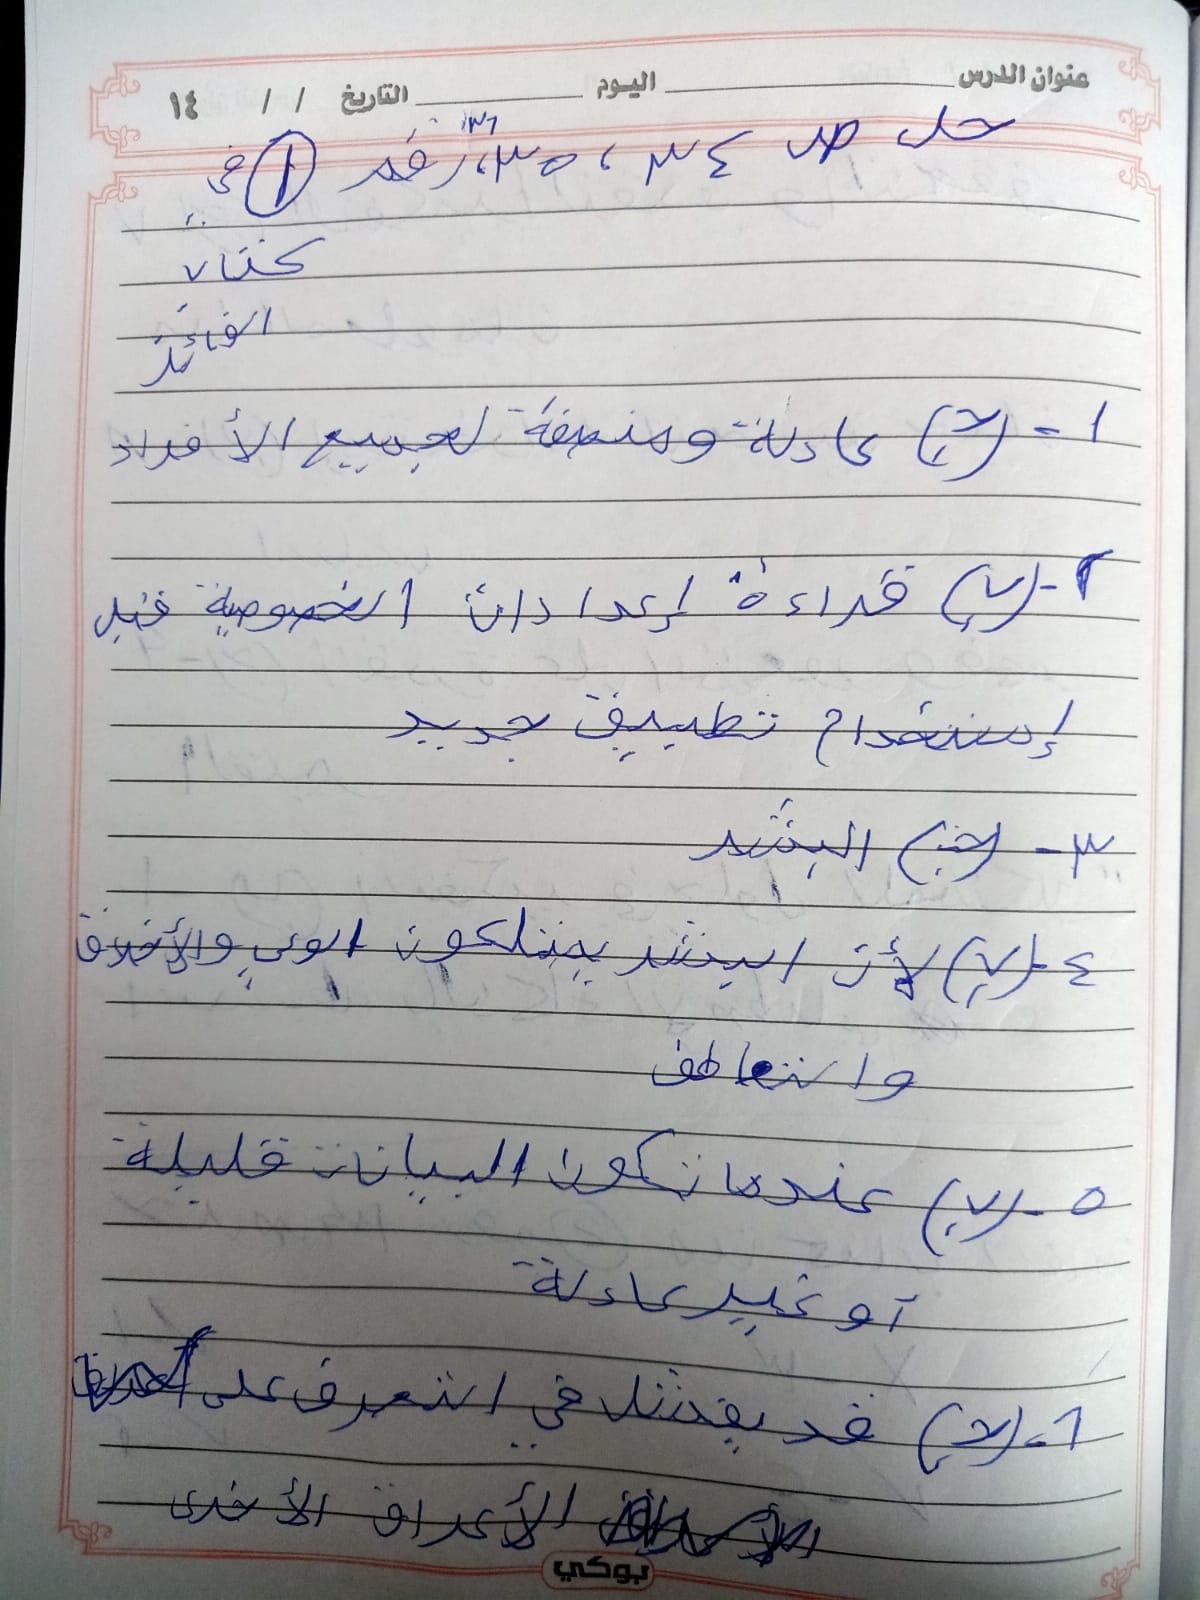 عنوان الدرس اليوم التاريخ / / ١٤
حل ص ٣٤ ، ٣٥ ، ٣٦ رقم ١ في
كتاب
الفائز
١- (ج) عادلة ومنصفة لجميع الأفراد
٢- (ب) قراءة إعدادات الخصوصية قبل
إستخدام تطبيق جديد
٣- (ج) البشر
٤- (ب) لأن البشر يمتلكون الوعي والأخلاق
والتعاطف
٥- (ب) عندما تكون البيانات قليلة
أو غير عادلة
٦- (ج) قد يفشل في التعرف على
الأعراق الأخرى
بوكي